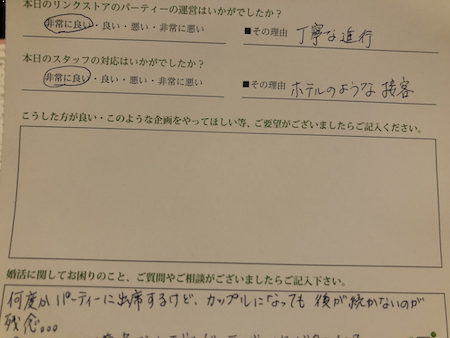 本日のリンクストアのパーティーの運営はいかがでしたか?
非常に良い・良い・悪い・非常に悪い ■その理由 丁寧な進行
本日のスタッフの対応はいかがでしたか?
非常に良い・良い・悪い・非常に悪い ■その理由 ホテルのような接客
こうした方が良い・このような企画をやってほしい等、ご要望がございましたらご記入ください。
婚活に関してお困りのこと、ご質問やご相談がございましたらご記入下さい。
何度かパーティーに出席するけど、カップルになっても後が続かないのが
残念...